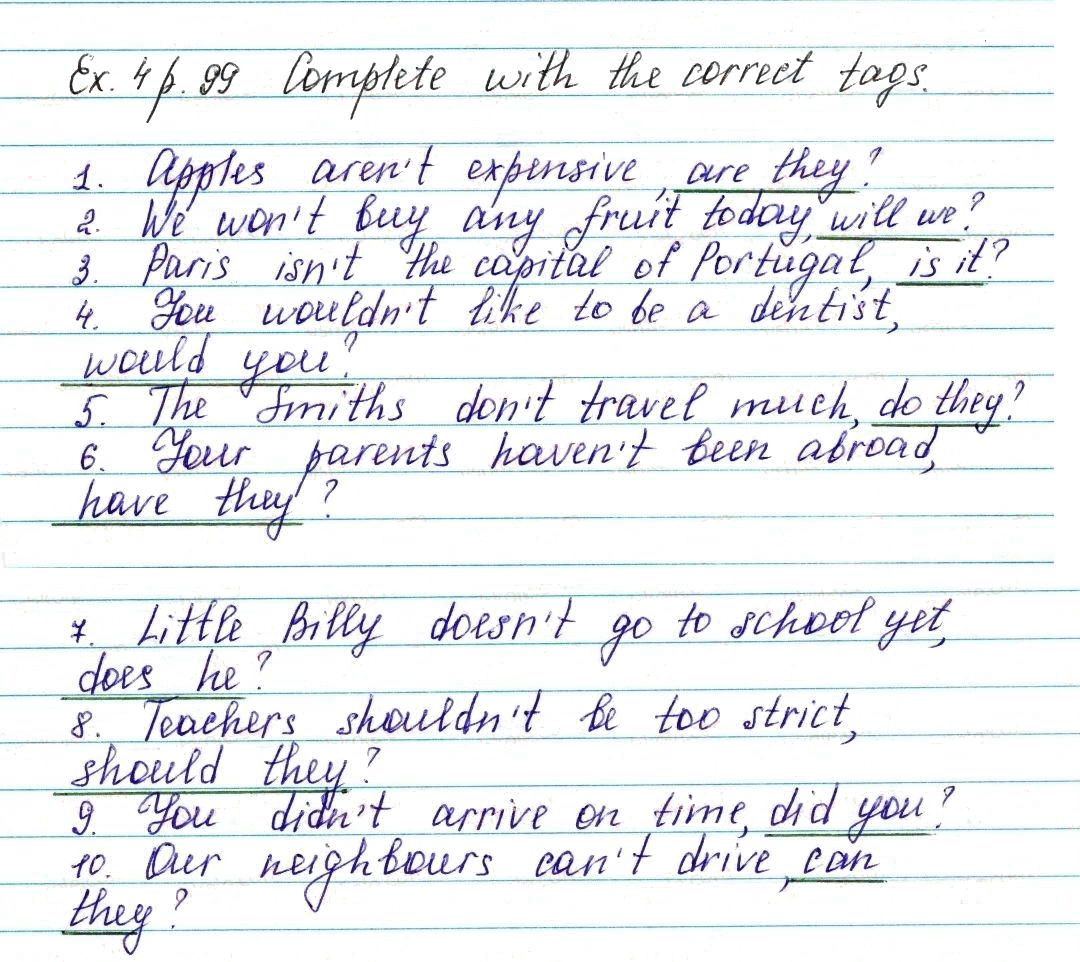 Ex. 4 p. 99 Complete with the correct tags.
1. Apples aren't expensive, are they?
2. We won't buy any fruit today, will we?
3. Paris isn't the capital of Portugal, is it?
4. You wouldn't like to be a dentist,
would you?
5. The Smiths don't travel much, do they?
6. Your parents haven't been abroad,
have they?
7. Little Billy doesn't go to school yet,
does he?
8. Teachers shouldn't be too strict,
should they?
9. You didn't arrive on time, did you?
10. Our neighbours can't drive, can
they?